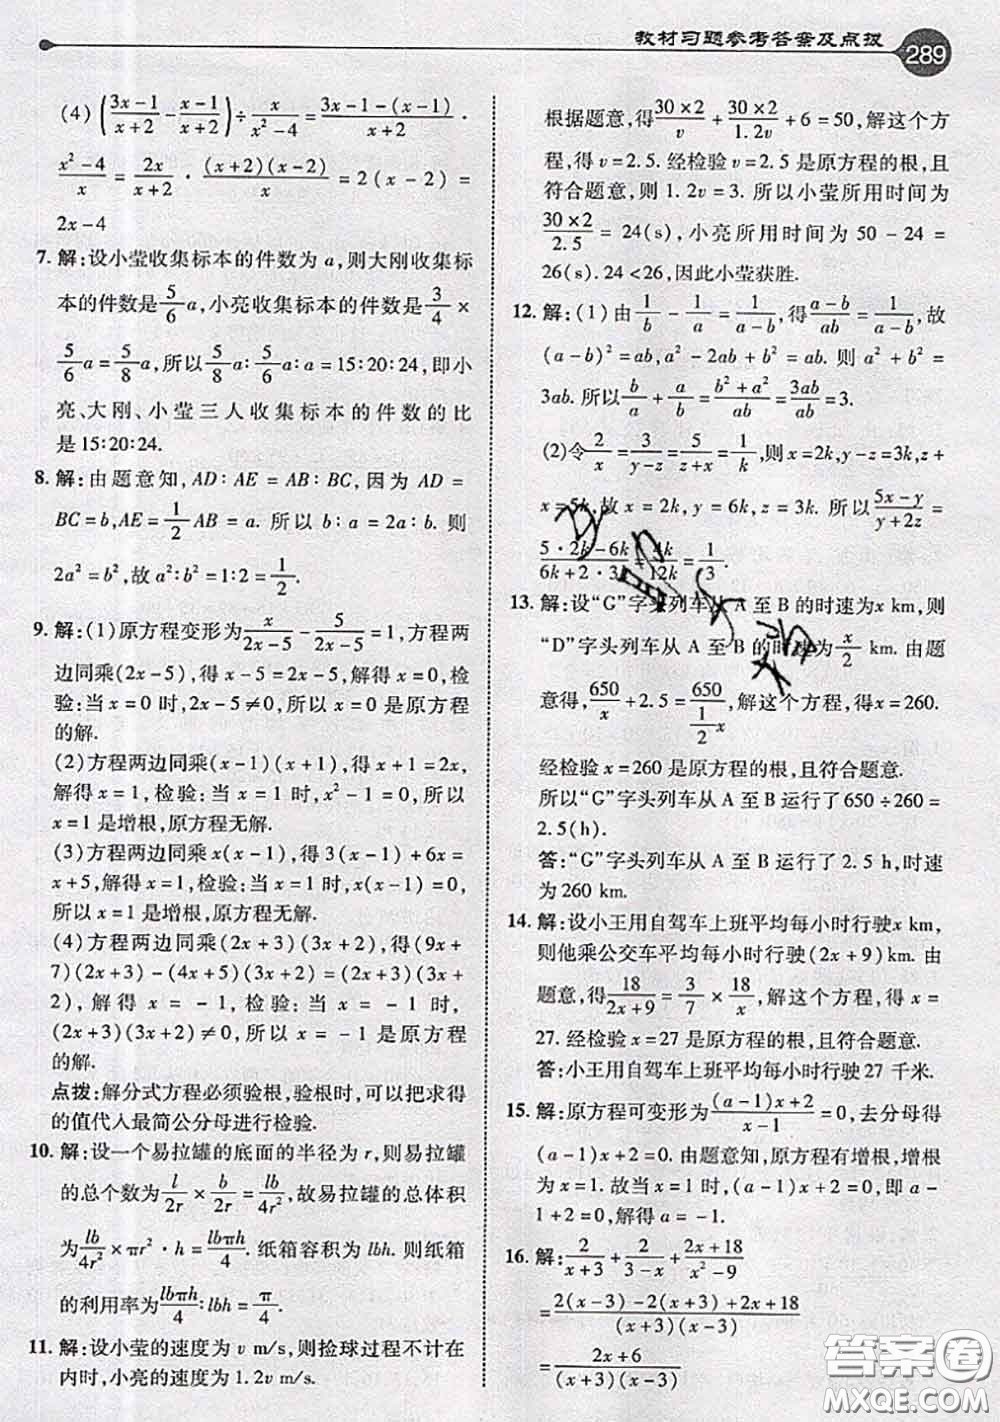 教材习题参考答案及点拨
289
(4) ((3x-1)/(x+2) - (x-1)/(x+2)) ÷ x/(x²-4) = (3x-1-(x-1))/(x+2) ·
(x²-4)/x = 2x/(x+2) · ((x+2)(x-2))/x = 2(x-2) =
2x-4
7. 解:设小莹收集标本的件数为 a,则大刚收集标
本的件数是 5/6 a,小亮收集标本的件数是 3/4 ×
5/6 a = 5/8 a,所以 5/8 a∶5/6 a∶a = 15∶20∶24,即小
亮、大刚、小莹三人收集标本的件数的比
是 15∶20∶24.
8. 解:由题意知,AD∶AE = AB∶BC,因为 AD =
BC = b,AE = 1/2 AB = a. 所以 b∶a = 2a∶b. 则
2a² = b²,故 a²∶b² = 1∶2 = 1/2.
9. 解:(1)原方程变形为 x/(2x-5) - 5/(2x-5) = 1,方程两
边同乘(2x-5),得 x-5=2x-5,解得 x=0,检
验:当 x=0 时,2x-5≠0,所以 x=0 是原方程
的解.
(2)方程两边同乘(x-1)(x+1),得 x+1=2,
解得 x=1,检验:当 x=1 时,x²-1=0,所以
x=1 是增根,原方程无解.
(3)方程两边同乘 x(x-1),得 3(x-1)+6x=
x+5,解得 x=1,检验:当 x=1 时,x(x-1)=0,
所以 x=1 是增根,原方程无解.
(4)方程两边同乘(2x+3)(3x+2),得(9x+
7)(2x+3)-(4x-5)(3x+2)=(2x+3)(3x+
2),解得 x = -1,检验:当 x = -1 时,
(2x+3)(3x+2)≠0,所以 x = -1 是原方程
的解.
点拨:解分式方程必须验根,验根时,可以把求得
的值代入最简公分母进行检验.
10. 解:设一个易拉罐的底面的半径为 r,则易拉罐
的总个数为 l/2r × b/2r = lb/4r². 故易拉罐的总体积
为 lb/4r² × πr² · h = lbπh/4. 纸箱容积为 lbh. 则纸箱
的利用率为 lbπh/4∶lbh = π/4.
11. 解:设小莹的速度为 v m/s,则捡球过程不计在
内时,小亮的速度为 1.2v m/s.
根据题意,得 (30×2)/v + (30×2)/1.2v + 6 = 50,解这个方
程,得 v=2.5. 经检验 v=2.5 是原方程的根,且
符合题意,则 1.2v=3. 所以小莹所用时间为
(30×2)/2.5 = 24(s),小亮所用时间为 50-24=
26(s). 24<26,因此小莹获胜.
12. 解:(1)由 1/b - 1/a = 1/(a-b),得 (a-b)/ab = 1/(a-b),故
(a-b)²=ab,a²-2ab+b²=ab. 则 a²+b²=
3ab. 所以 b/a + a/b = (b²+a²)/ab = 3ab/ab = 3.
(2)令 2/x = 3/(y-z) = 5/(z+x) = 1/k,则 x=2k,y-z=3k,z+
x=5k. 故 x=2k,y=6k,z=3k. 所以 (5x-y)/(y+2z) =
(5·2k-6k)/(6k+2·3k) = 4k/12k = 1/3.
13. 解:设“G”字头列车从 A 至 B 的时速为 x km,则
“D”字头列车从 A 至 B 的时速为 x/2 km. 由题
意得,650/x + 2.5 = 650/(1/2 x),解这个方程,得 x=260.
经检验 x=260 是原方程的根,且符合题意.
所以“G”字头列车从 A 至 B 运行了 650÷260=
2.5(h).
答:“G”字头列车从 A 至 B 运行了 2.5 h,时速
为 260 km.
14. 解:设小王用自驾车上班平均每小时行驶 x km,
则他乘公交车平均每小时行驶(2x+9)km. 由
题意,得 18/(2x+9) = 3/7 × 18/x,解这个方程,得 x=
27. 经检验 x=27 是原方程的根,且符合题意.
答:小王用自驾车上班平均每小时行驶 27 千米.
15. 解:原方程可变形为 ((a-1)x+2)/(x-1) = 0,去分母得
(a-1)x+2=0. 由题意知,原方程有增根,增根
为 x=1. 故当 x=1 时,(a-1)x+2=0,即 a-
1+2=0,解得 a=-1.
16. 解:2/(x+3) + 2/(3-x) + (2x+18)/(x²-9)
= (2(x-3)-2(x+3)+2x+18)/((x+3)(x-3))
= (2x+6)/((x+3)(x-3))
答案圈
MXQE.COM